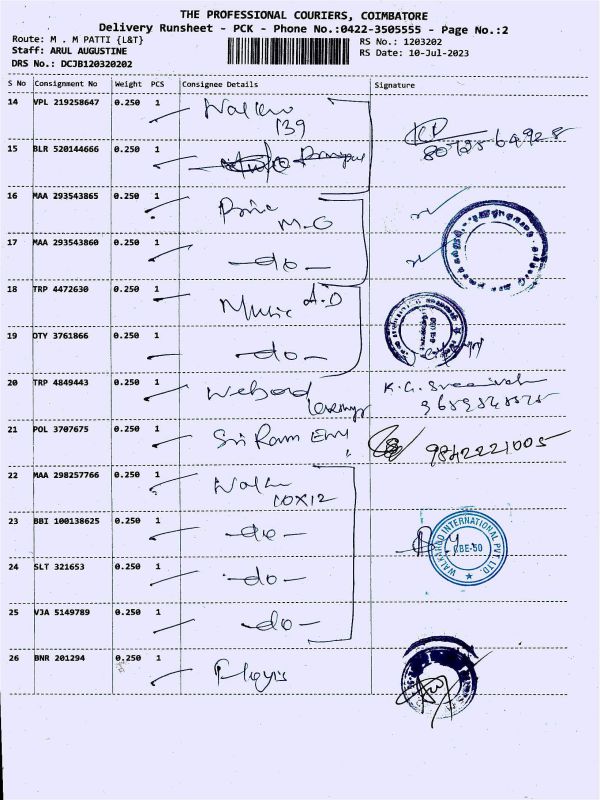 THE PROFESSIONAL COURIERS, COIMBATORE
Delivery Runsheet - PCK - Phone No.:0422-3505555 - Page No.:2
Route: M . M PATTI {L&T}
RS No.: 1203202
Staff: ARUL AUGUSTINE
RS Date: 10-Jul-2023
DRS No.: DCJB120320202
S No Consignment No Weight PCS Consignee Details Signature
14 VPL 219258647 0.250 1
139
15 BLR 520144666 0.250 1
16 MAA 293543865 0.250 1
17 MAA 293543860 0.250 1 -do-
18 TRP 4472630 0.250 1
19 OTY 3761866 0.250 1 -do-
20 TRP 4849443 0.250 1
21 POL 3707675 0.250 1 Sri Ram 9842221005
22 MAA 298257766 0.250 1
23 BBI 100138625 0.250 1 -do- WALKAROO INTERNATIONAL PVT. LTD. CBE-50
24 SLT 321653 0.250 1 -do-
25 VJA 5149789 0.250 1 -do-
26 BNR 201294 0.250 1